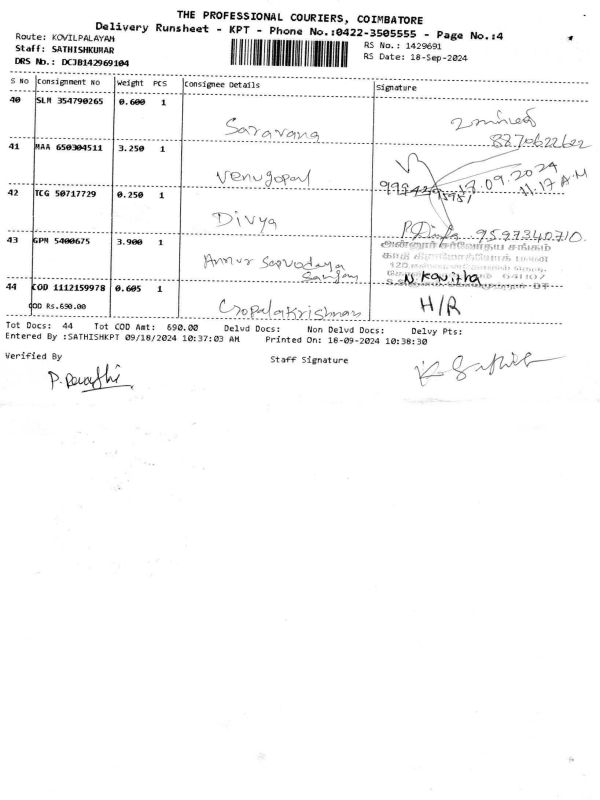 THE PROFESSIONAL COURIERS, COIMBATORE
Delivery Runsheet - KPT - Phone No.:0422-3505555 - Page No.:4
Route: KOVILPALAYAM
RS No.: 1429691
Staff: SATHISHKUMAR
RS Date: 18-Sep-2024
DRS No.: DCJB142969104
S No Consignment No Weight PCS Consignee Details Signature
40 SLM 354790265 0.600 1
Saravana
8870622622
41 MAA 650304511 3.250 1
Venugopal
18.09.2024
11.17 A.M
42 TCG 50717729 0.250 1
Divya
9597340710
43 GPM 5400675 3.900 1
Annur Sarvodaya
Sangam
N. Kavitha
44 COD 1112159978 0.605 1
COD Rs.690.00
Gopalakrishnan
H/R
Tot Docs: 44 Tot COD Amt: 690.00 Delvd Docs: Non Delvd Docs: Delvy Pts:
Entered By :SATHISHKPT 09/18/2024 10:37:03 AM Printed On: 18-09-2024 10:38:30
Verified By
Staff Signature